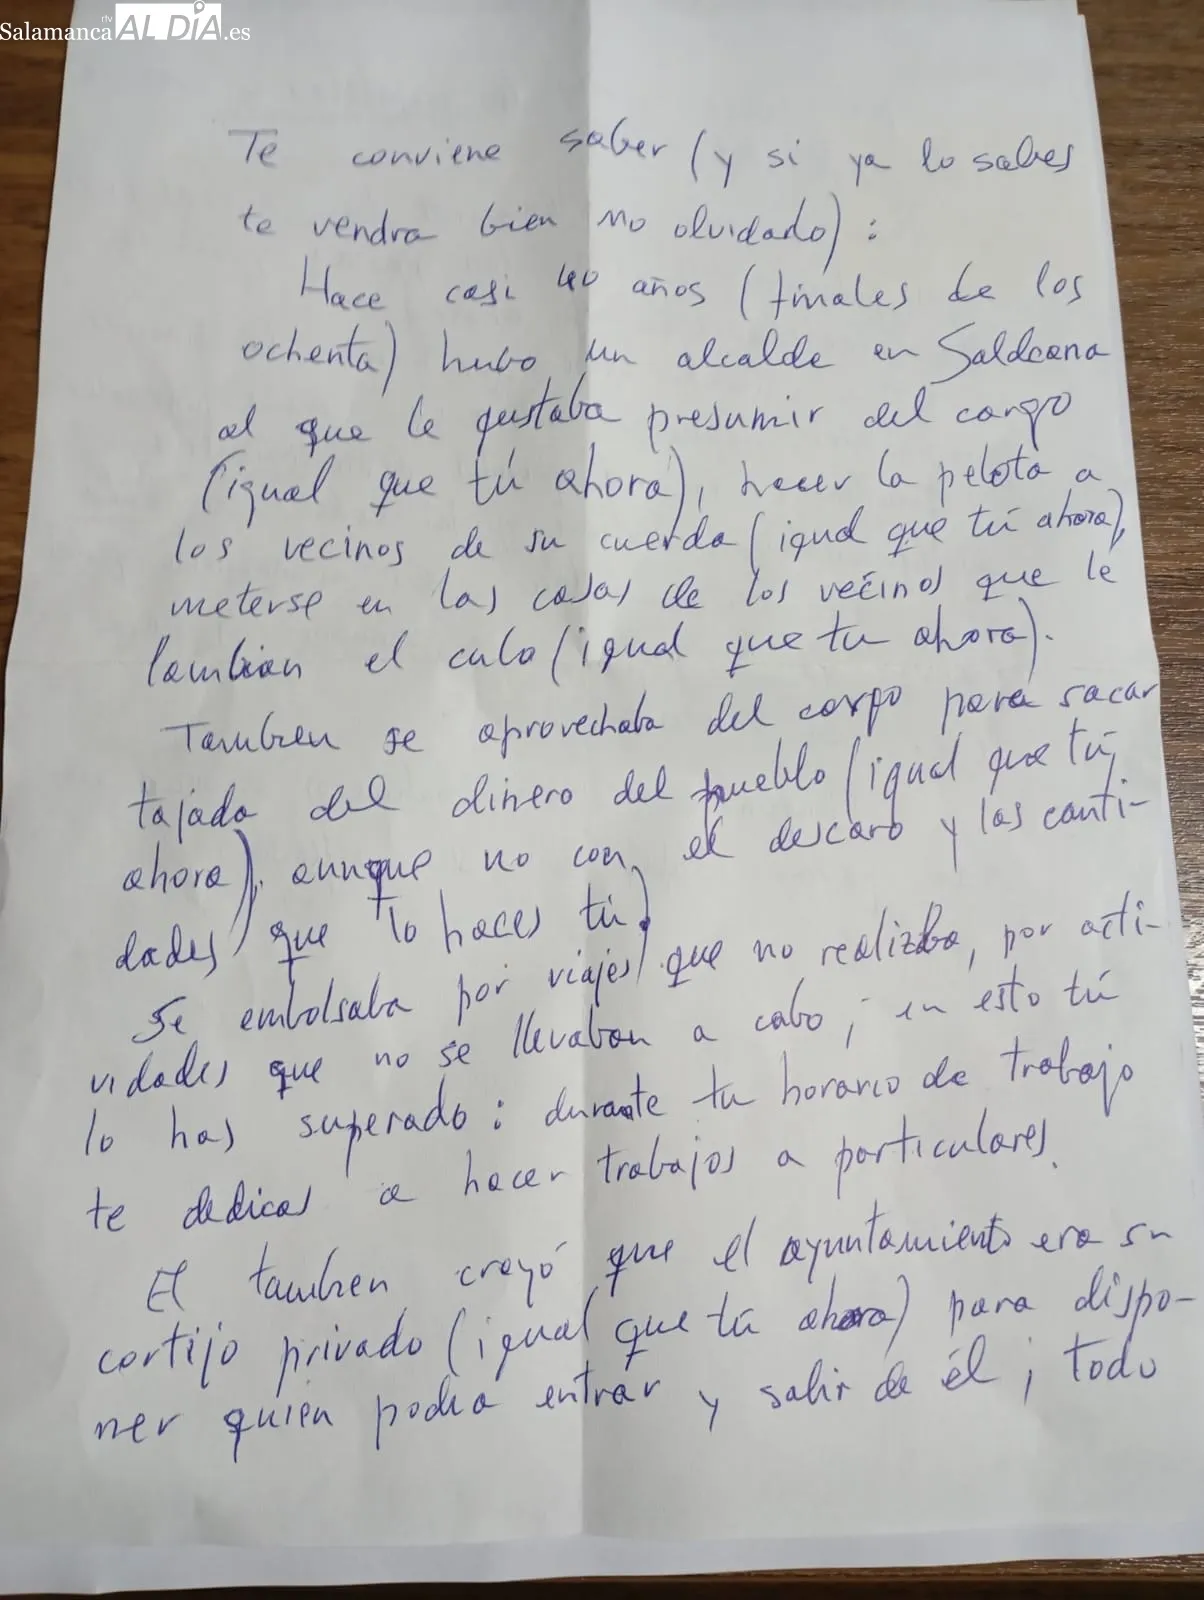 Salamanca rtv AL DÍA.es
Te conviene saber (y si ya lo sabes
te vendra bien no olvidarlo):
Hace casi 40 años (finales de los
ochenta) hubo un alcalde en Saldeana
al que le gustaba presumir del cargo
(igual que tú ahora), hacer la pelota a
los vecinos de su cuerda (igual que tú ahora),
meterse en las casas de los vecinos que le
lambian el culo (igual que tu ahora).
Tambien se aprovechaba del cargo para sacar
tajada del dinero del pueblo (igual que tú
ahora), aunque no con el descaro y las canti-
dades que lo haces tú.
Se embolsaba por viajes que no realizba, por acti-
vidades que no se llevaban a cabo; en esto tú
lo has superado: durante tu horario de trabajo
te dedicas a hacer trabajos a particulares.
El tambien creyó que el ayuntamiento era su
cortijo privado (igual que tú ahora) para dispo-
ner quien podia entrar y salir de él; todo